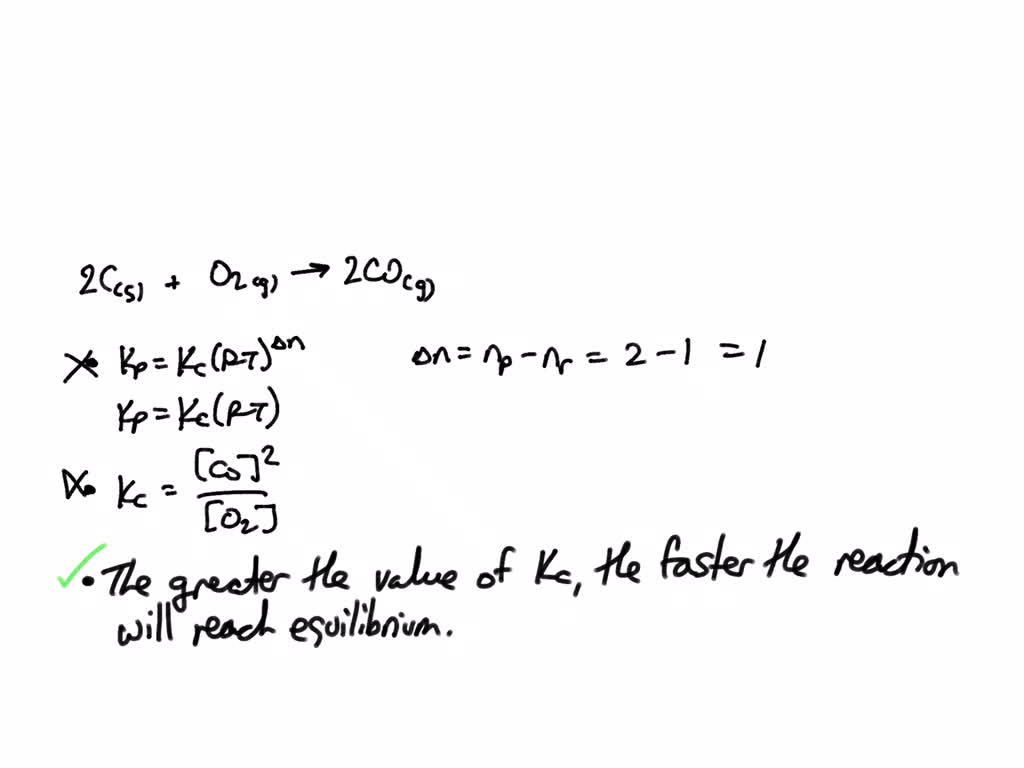 2C(s) + O2(g) → 2CO(g)
Kp = Kc(RT)^Δn Δn = np - nr = 2 - 1 = 1
Kp = Kc(RT)
Kc = [CO]^2 / [O2]
• The greater the value of Kc, the faster the reaction
will reach equilibrium.